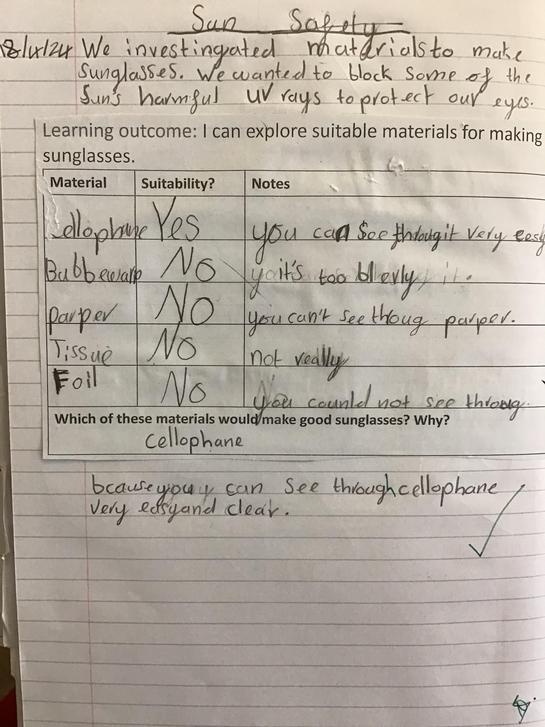 Sun Safety
18/4/24 We investingated materials to make
Sunglasses. We wanted to block some of the
Sun's harmful UV rays to protect our eyes.
Learning outcome: I can explore suitable materials for making
sunglasses.
Material Suitability? Notes
Cellophane Yes you can see throughit very easy
Bubbewarp No it's too blerly
parper No you can't see thoug parper.
Tissue No not really
Foil No you counld not see throug.
Which of these materials would make good sunglasses? Why?
Cellophane
bcause you can see through cellophane
very easy and clear.